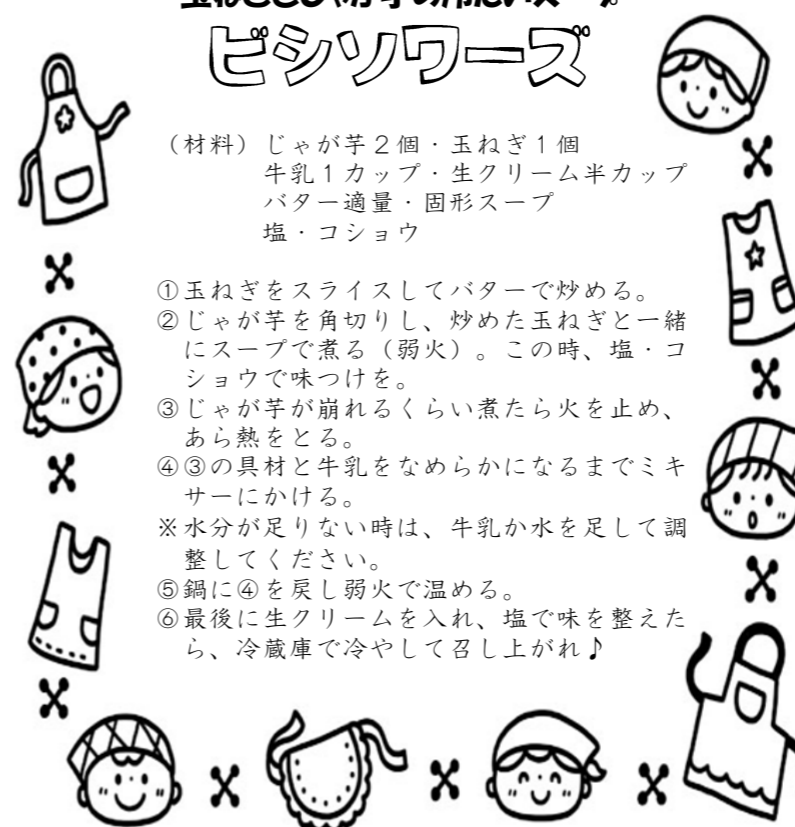 玉ねぎとじゃが芋の冷たいスープ
ビシソワーズ
（材料）じゃが芋２個・玉ねぎ１個
牛乳１カップ・生クリーム半カップ
バター適量・固形スープ
塩・コショウ
①玉ねぎをスライスしてバターで炒める。
②じゃが芋を角切りし、炒めた玉ねぎと一緒
にスープで煮る（弱火）。この時、塩・コ
ショウで味つけを。
③じゃが芋が崩れるくらい煮たら火を止め、
あら熱をとる。
④③の具材と牛乳をなめらかになるまでミキ
サーにかける。
※水分が足りない時は、牛乳か水を足して調
整してください。
⑤鍋に④を戻し弱火で温める。
⑥最後に生クリームを入れ、塩で味を整えた
ら、冷蔵庫で冷やして召し上がれ♪